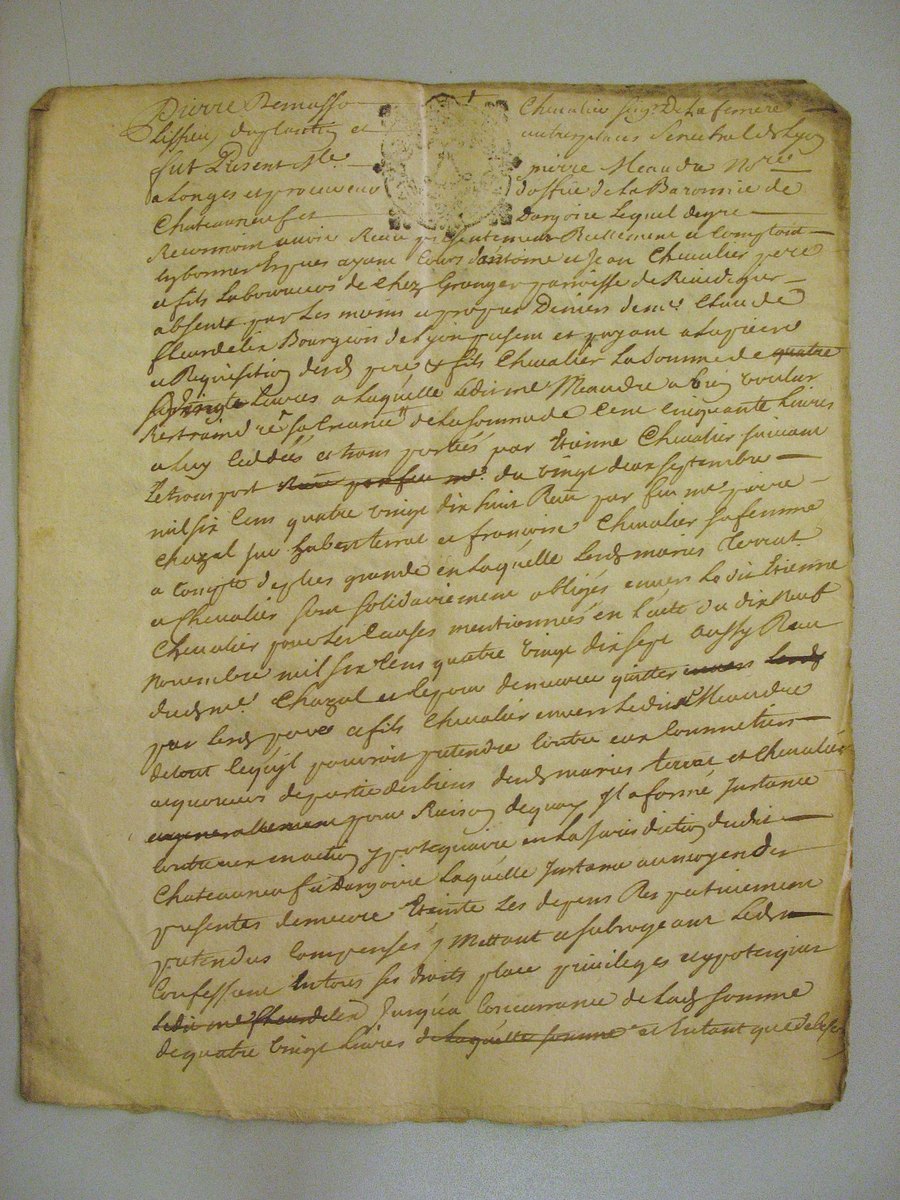 Pierre Demasso Chevalier seigr De La ferriere
Lissieu, du plantin et autres places Senechal de Lyon
fut Present Me pierre Meaudre Nore
a Longes et procureur d'office de La Baronnie de
Chateauneuf et Dargoire Lequel de gre
Reconnoit avoir Receu presentement Reellement et Comptant
en bonnes Especes ayant Cours d'antoine et Jean Chevalier pere
et fils Laboureurs de Chez Granger parroisse de Rivedegier
absents par Les mains et propres Deniers de me Claude
fleurdelix Bourgeois de Lyon present et payant a La priere
et Requisition desd pere & fils Chevalier La Somme de quatre
vingts Livres a Laquelle Ledit me Meaudre a bien voulu
Restraindre sa Creance de La somme de Cent Cinquante Livres
a Luy Ceddées et transportées par Etienne Chevalier suivant
Le transport du vingt deux septembre
mil six Cens quatre vingt dix huit Receu par feu me pierre
Chazal sur terrat et françoise Chevalier sa femme
a Compte de plus grande en Laquelle Lesd mariés Terrat
et Chevalier sont solidairement obligés envers Le dit Etienne
Chevalier pour Les Causes mentionnées en L'acte du dix Neuf
Novembre mil six Cens quatre vingt dix sept aussy Receu
dud me Chazal et Le pour demeurer quittes envers Lesd
par Lesd pere et fils Chevalier envers Ledit me Meaudre
de tout Ce qu'il pouvoit pretendre Contre eux Comme tiers
acquereurs de partie des biens desd mariés terrat et Chevalier
et generallement pour Raison de quoy Il a formé Instance
Contre eux en action ypotequaire en La Jurisdiction dudit
Chateauneuf et Dargoire Laquelle Instance au moyen des
presentes demeure Eteinte Les depens Respectivement
pretendus Compensés, Mettant et subrogeant Led
Confessant en tous ses droits place privileges et ypoteques
Ledit me fleurdelix Jusqu'a Concurrance de Lad somme
de quatre vingt Livres de Laquelle somme et En tant que de besoin